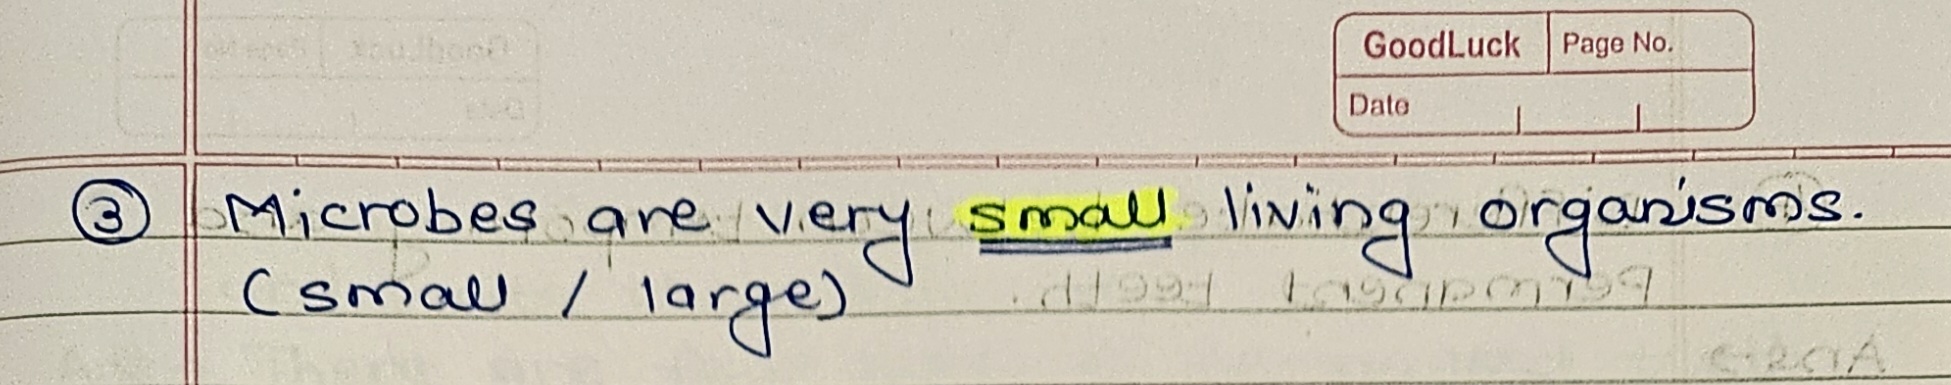 GoodLuck Page No.
Date
③ Microbes are very small living organisms.
(small / large)